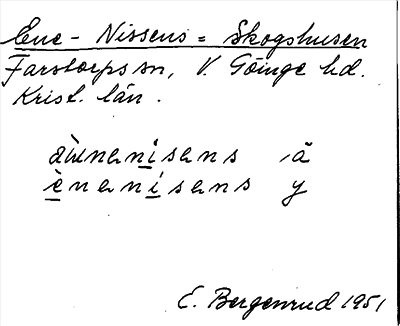 Ene - Nissens = Skogshusen
Farstorps sn, V. Göinge hd.
Krist. län.
àẁnenisens ä
ènenisens y
E. Bergenrud 1951